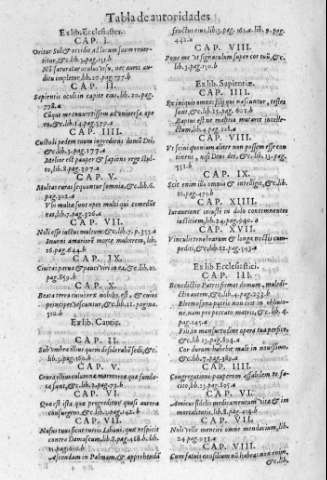 Tabla de autoridades
Ex lib. Ecclesiastes.
CAP. I.
Oritur Sol & occidit ad locum suum reuer-
titur, &c. lib. 2. pag. 13.b
Nõ saturatur oculus visu, nec auris au-
ditu impletur, lib. 20. pag. 737.b
CAP. II.
Sapientis oculi in capite eius, lib. 20. pag.
778.a
Cũque me in opera
CAP. IIII.
Custodi pedem tuum ingrediens domũ Dei,
&c. lib. 5. pag. 177.a
Melior est pauper & sapiens rege stul-
to, lib. 8. pag. 307.a
CAP. V.
Multas curas sequuntur somnia, &c. lib. 6.
pag. 202.a
Vbi multæ sunt opes multi qui comedũt
eas, lib. 7. pag. 326.a
CAP. VII.
Noli esse iustus multum, &c. lib. 7. p. 352.a
Inueni amariorẽ morte mulierem, lib.
16. pag. 644.b
CAP. IX.
Ciuitas parua & pauci viri in ea, &c. lib. 10.
pag. 459.b
CAP. X.
Beata terra cuius rex nobilis est, & cuius
principes &c. lib. 12. pag.
510.b
Ex lib. Cantic.
CAP. II.
Sub vmbra illius quem desideraueram sedi, &c.
lib. 5. pag. 180.b
CAP. V.
Crura illius columnæ marmoreæ quæ funda-
tæ sunt, &c. lib. 2. pag. 53.b
CAP. VI.
Quæ est ista, quæ progreditur quasi aurora
consurgens, lib. 9. pag. 142.b
CAP. VII.
Nasus tuus sicut turris Libani, quæ respicit
contra Damascum, lib. 2. pag. 68.b. lib.
11. pag.
Ascendam in Palmam, & apprehendã
fructus eius, lib. 5. pag. 163.a. lib. 9. pag.
442.a
CAP. VIII.
Pone me vt signaculum super cor tuũ, &c.
lib. 5. pag. 150.b
Ex lib. Sapientiæ.
CAP. IIII.
Ex iniquis omnes filij qui nascuntur, testes
sunt, &c. lib. 15. pag. 607.b
Raptus est ne malitia mutaret intelle-
ctum, lib. 4. pag. 118.a
CAP. VIII.
Vt sciui quoniam aliter non possem esse con
tinens, nisi Deus det, &c. lib. 13. pag.
CAP. IX.
Scit enim illa omnia & intelligit, &c. lib.
10. pag. 470.b
CAP. XIIII.
Iurauerunt iniustè in dolo contemnentes
iustitiam, lib. 24. pag. 940.a
CAP. XVII.
Vinculis tenebrarum & longæ noctis com-
pediti, &c. lib. 22. pag. 903.a
Ex lib Ecclesiastici.
CAP. III.
Benedictio Patris firmat domum, maledi-
ctio autem, &c. lib. 4. pag. 233.b
Eleemosyna patris non erit in obliuio-
ne, nam pro peccato matris, &c. lib. 4.
pag. 147.a
Fili in mansuetudine opera tua perfice,
&c. lib. 13. pag. 204.a
Cor durum habebit malè in nouissimo,
&c. lib. 7. pag. 284.a
CAP. IIII.
Congregationi pauperum affabilem te fa-
cito, lib. 15. pag. 805.a
CAP. VI.
Amicus fidelis medicamentum vitæ & im
mortalitatis, lib. 8. pag. 418.b
CAP. VII.
Noli velle mentiri omne mendacium, lib.
24. pag. 933.a
CAP. VIII.